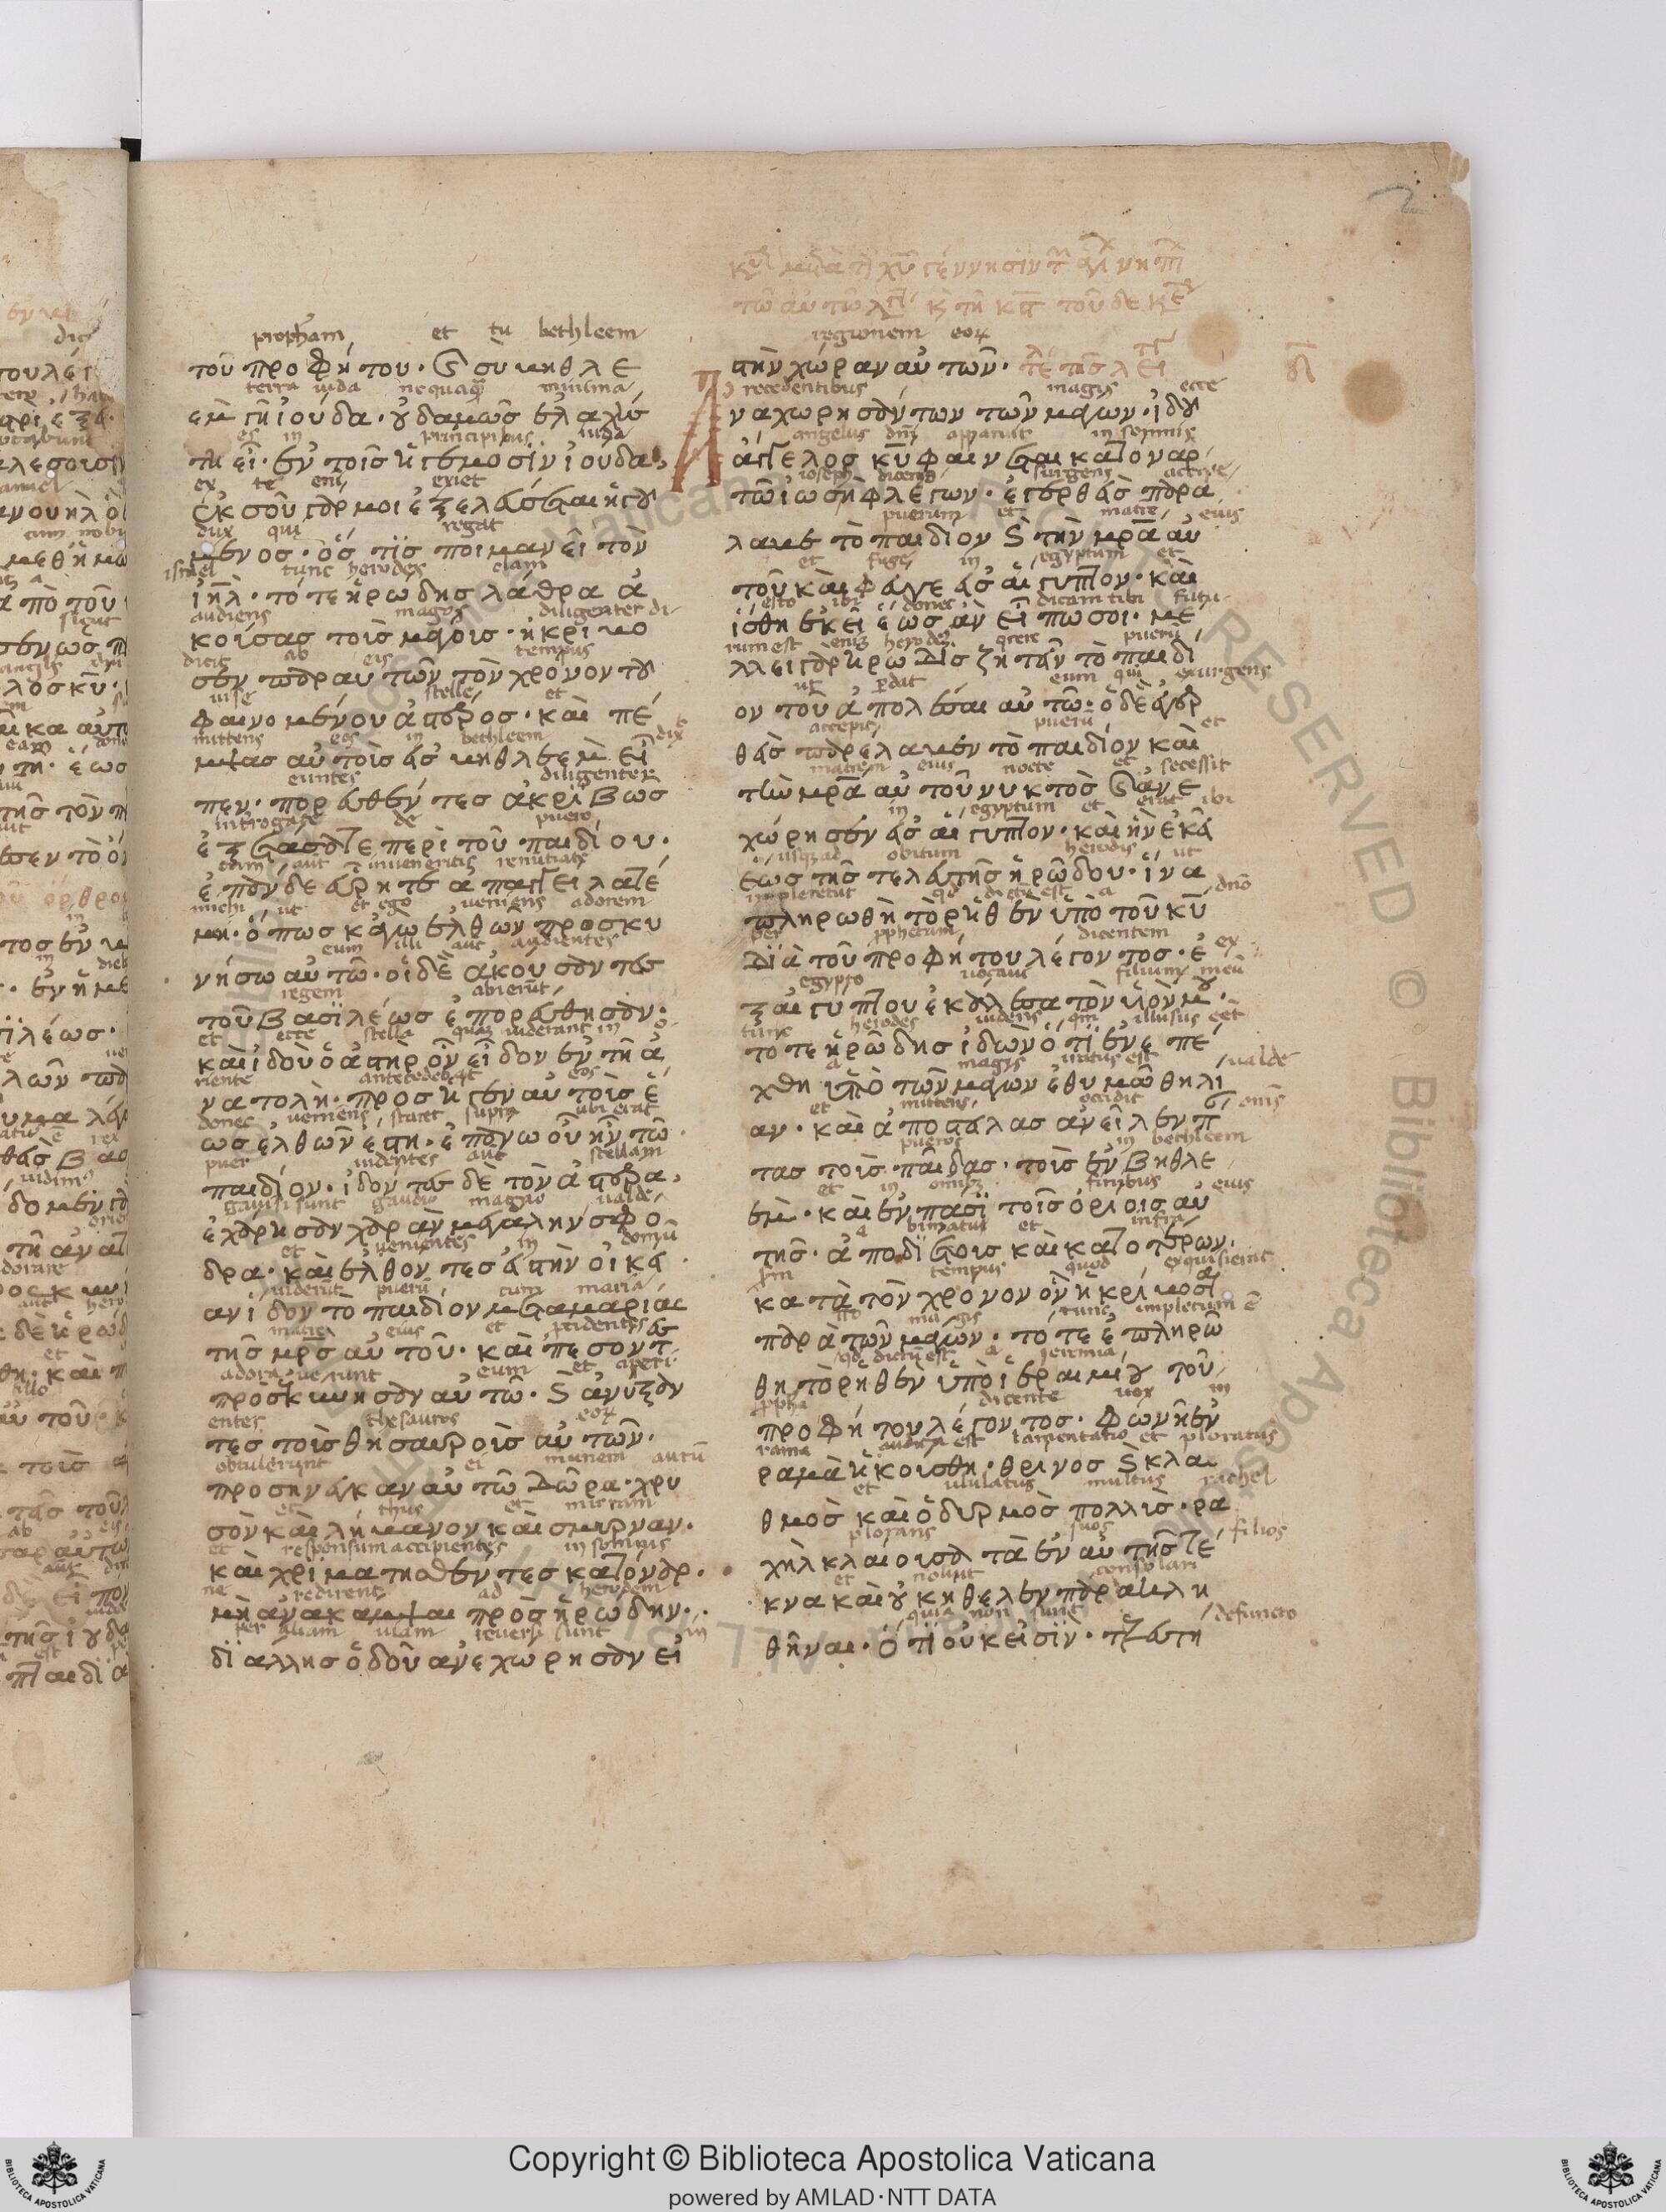 prophetam et tu bethleem
τοῦ προφήτου· καὶ σὺ βηθλε
terra iuda nequaquam minima
ὲμ γῆ ἰούδα· οὐδαμῶς ἐλαχίσ
es in principibus iuda
τη εἶ· ἐν τοῖς ἡγεμόσιν ἰούδα,
ex te eni exiet
ἐκ σοῦ γάρ μοι ἐξελεύσεται ἡγού
dux qui regat
μενος· ὅς τις ποιμανεῖ τὸν
israel tunc herodes clam
ἰηλ· τότε ἡρώδης λάθρα ἀ
audiens magos diligenter di
κοίσας τοὶς μάγοις· ἠκρίβο
dicit ab eis tempus
σεν παρ αυτῶν τὸν χρόνον τοῦ
stelle et
φαινομένου ἀστέρος· καὶ πέ
mittens eos in bethleem dix
μψας αὐτοὶς εἰς βηθλεεμ εἶ
euntes diligenter
πεν· πορευθέντες ἀκριβως
introgate de puero
ἐξετάσατε περὶ τοῦ παιδίου·
cum aut inveneritis renutiate
ἐπὰν δε εὕρητε ἀπαγγείλατέ
michi ut et ego veniens adorem
μη· ὅπως κἀγὼ ἐλθὼν προσκυ
eum illi aut audientes
νήσω αὐτῶ· οἱ δὲ ἀκούσαντες
regem abierunt
τοῦ βασιλέως ἐπορεύθησαν·
et ecce stella quam viderant in o
καὶ ἰδοὺ ὁ ἀστὴρ ὃν εἶδον ἐν τῆ ἀ
riente antecedebat eos
νατολὴ· προσῆγεν αὐτοὶς ἕ
donec veniens staret supra ubi erat
ως ἐλθὼν ἔστη· ἐπάνω οὗ ἦν τῶ
puer videntes aut stellam
παιδίον· ἰδόντες δὲ τὸν ἀστέρα,
gavisi sunt gaudio magno valde
ἐχάρησαν χαρὰν μεγάλην σφό
et venientes in domum
δρα· καὶ ἐλθόντες εἰς τὴν οἰκί
viderunt pueru cum maria
αν ἴδον τὸ παιδίον μετα μαρίας
matre eius et procidentes
τῆς μρς αὐτοῦ· καὶ πεσόντες
adoraverunt eum et aperi
προσεκύνησαν αὐτῶ· καὶ ἀνοίξαν
entes thesauros eorum
τες τοὶς θησαυροὶς αὐτῶν·
obtulerunt ei munera aurum
προσηνεγκαν αὐτῶ δῶρα· χρυ
et thus et mirram
σὸν καὶ λήβανον καὶ σμυρναν·
et responsum accipientes in somnis
καὶ χριματησθέντες κατ ὄναρ·
ne redirent ad herodem
μὴ ἀνακαμψαι πρὸς ἡρώδην·
per aliam viam reversi sunt in
δι αλλης ὁδοῦ ἀνεχώρησαν εἰ
regionem eorum
τὴν χώραν αὐτῶν·
recedentibus magis ecce
Ἀναχωρησάντων τῶν μάγων· ἰδοῦ
angelus dni apparuit in somnis
ἄγγελος κυ φαινεται κατ οναρ
ioseph dicens surgens accipe
τῶ ἰωσὴφ λέγων· ἐγερθεὶς παρα
puerum et matre eius
λαβε τὸ παιδίον καὶ τὴν μρα αὐ
et fuge in egyptum et
τοῦ καὶ φεῦγε εἰς αἴγυπτον· καὶ
esto ibi donec dicam tibi futu
ἴσθη ἐκεῖ ἕως ἀν εἶπω σοι· με
rum est enim herodes qrere pueru
λλει γὰρ ἡρώδις ζητεῖν τὸ παιδί
ut perdat eum qui exurgens
ον τοῦ ἀπολέσαι αὐτῶ· ὁ δὲ ἐγερ
accepit pueru et
θεὶς παρελαμεν τὸ παιδίον καὶ
matrem eius nocte et secessit
τὴν μρα αὐτοῦ νυκτὸς καὶ ἀνε
in egyptum et erat ibi
χώρησεν εἰς αἴγυπτον· καὶ ἦν ἐκεῖ
usque ad obitum herodis ut
ἕως τῆς τελευτῆς ἡρώδου· ἵνα
impleretur qd dictu est a dno
πληρωθὴ τὸ ρηθὲν ὑπὸ τοῦ κυ
per prophetam dicentem ex
διὰ τοῦ προφήτου λέγοντος· ἐ
egypto vocavi filium meu
ξ αἰγύπτου ἐκάλεσα τὸν υἱὸν μου·
tunc herodes videns qm illusus eet
τότε ἡρώδης ἰδὼν ὅτι ἐνεπέ
a magis iratus est valde
χθη ὑπὸ τῶν μάγων ἐθυμώθη λι
et mittens occidit omnes
αν· καὶ ἀποστείλας ἀνεῖλεν π
pueros in bethleem
τας τοὶς παῖδας· τοὶς ἐν βηθλε
et in omnibus finibus eius
ὲμ· καὶ ἐν πᾶσι τοῖς ὁρίοις αὐ
a bimatu et infra
τῆς· ἀπὸ διετοις καὶ κατοτέρων·
tempus quod exquisierat
κατὰ τὸν χρόνον ὃν ἠκρίβοσε
magis tunc impletum e
παρὰ τῶν μάγων· τότε ἐπληρώ
qd dictu est a ieremia
θη τὸ ρηθὲν ὑπὸ ἱερεμίου τοῦ
dicente vox in
προφήτου λέγοντος· φωνῆ ἐν
rama audita est lamentatio et ploratus
ραμὰ ἠκοίσθη· θρίνος καὶ κλαυ
et ululatus multus rachel
θμὸς καὶ ὀδυρμὸς πολλὶς· ρα
plorans suos filios
χὴλ κλαίοισα τὰ ἐν αὐτῆς τέ
et noluit consolari
κνα καὶ οὐκ ηθελεν παρακλη
quia non sunt defuncto
θῆναι· ὅτι οὐκ εἰσίν· τελευτη
Copyright © Biblioteca Apostolica Vaticana
powered by AMLAD·NTT DATA